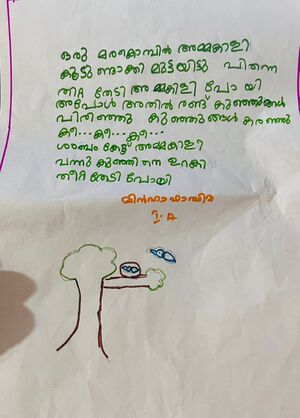 ഒരു മരകൊമ്പിൽ അമ്മകിളി
കൂടുണ്ടാക്കി മുട്ടയിട്ടു പിന്നെ
തീറ്റ തേടി അമ്മകിളി പോയി
അപ്പോൾ അതിൽ രണ്ട് കുഞ്ഞുങ്ങൾ
വിരിഞ്ഞു കുഞ്ഞുങ്ങൾ കരഞ്ഞു
കീ...കീ...കീ...
ശബ്ദം കേട്ട് അമ്മകിളി
വന്നു കുഞ്ഞിനെ ഉറക്കി
തീറ്റ തേടി പോയി
മിൻഹാ ഫാത്തിമ
I.A